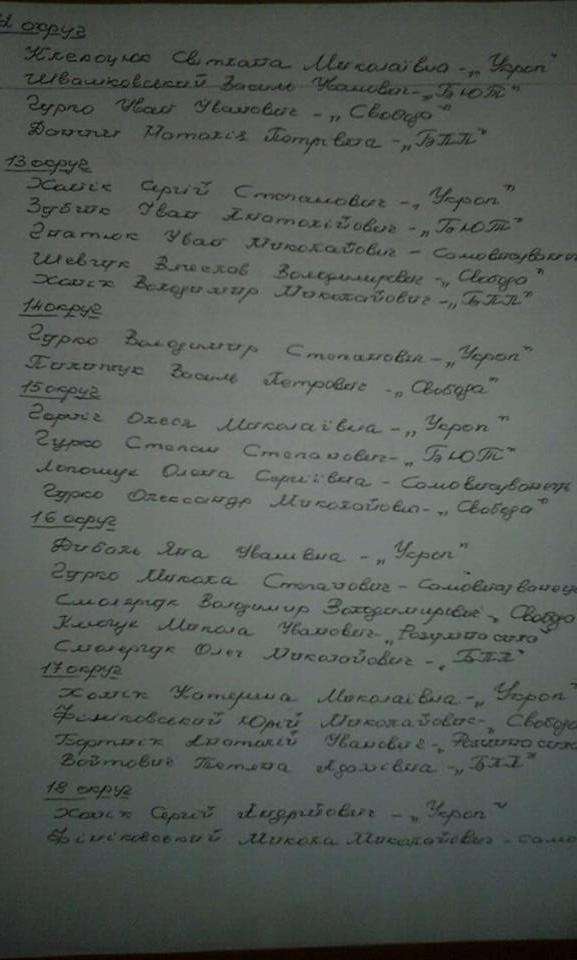 округ
Клепоцюк Світлана Миколаївна - „Укроп"
Шваліковський Василь Іванович - „БЮТ"
Гурко Іван Іванович - „Свобода"
Наталія Петрівна - „БПП"
13 округ
Хомік Сергій Степанович - „Укроп"
Зубчик Іван Анатолійович - „БЮТ"
Гнатюк Іван Миколайович - самовисуванец
Шевчук Вячеслав Володимирович - „Свобода"
Хомік Володимир Миколайович - „БПП"
14 округ
Гурко Володимир Степанович - „Укроп"
Василь Петрович - „Свобода"
15 округ
Олеся Миколаївна - „Укроп"
Гурко Степан Степанович - „БЮТ"
Олена Сергіївна - Самовисуванець
Гурко Олександр Миколайович - „Свобода"
16 округ
Дибаль Яна Іванівна - „Укроп"
Гурко Микола Степанович - самовисуванець
Смолярчук Володимир Володимирович - „Свобода
Климчук Микола Іванович - „Розумна сила"
Смолярчук Олег Миколайович - „БПП"
17 округ
Хомік Катерина Миколаївна - „Укроп"
Юрій Миколайович - „Свобода
Бортнік Анатолій Іванович - „Розумна сила
Войтович Тетяна Адамівна - „БПП"
18 округ
Хомік Сергій Андрійович - „Укроп"
Микола Миколайович - само